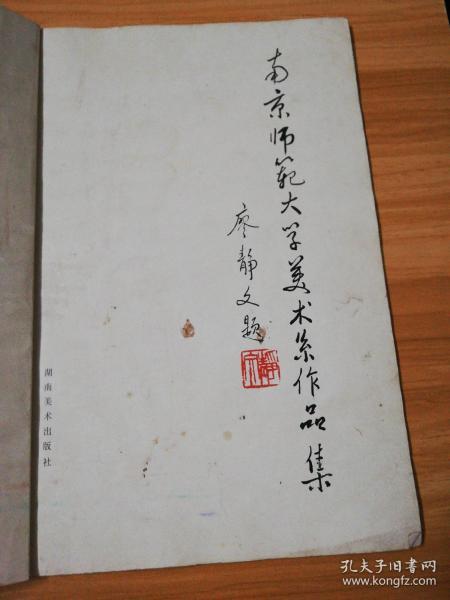 南京师範大学美术系作品集
廖静文题
静文
湖南美术出版社
孔夫子旧书网
www.kongfz.com